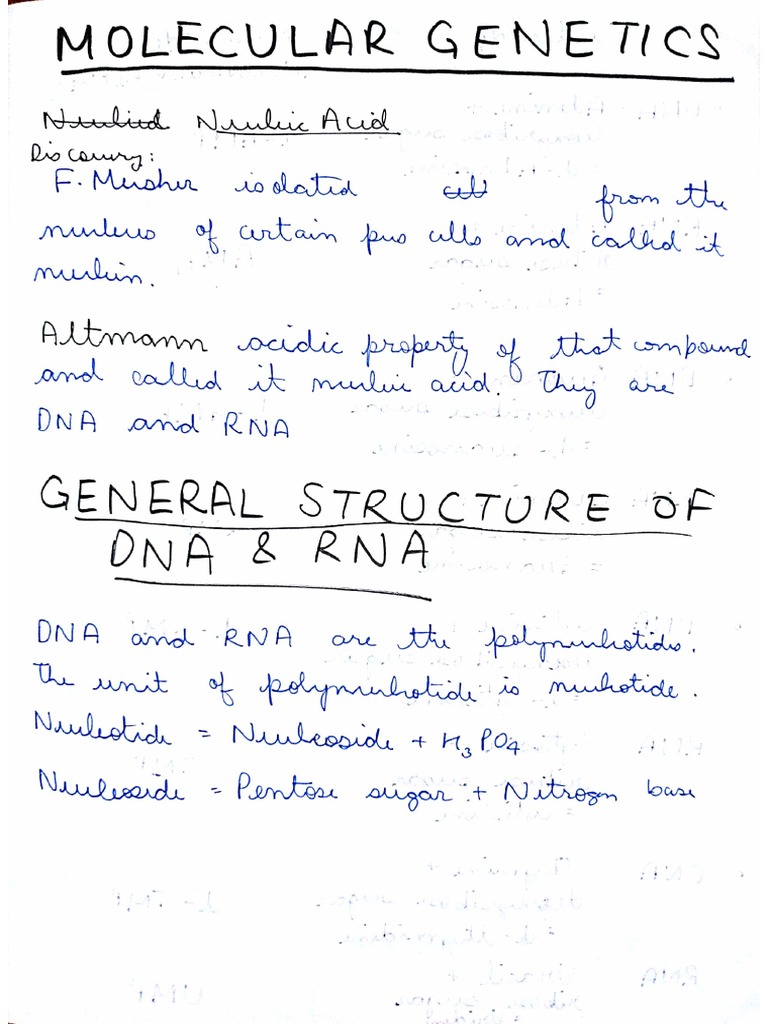 MOLECULAR GENETICS
Nucleic Acid
Discovery:
F. Meischer isolated cell from the
nucleus of certain pus cells and called it
nuclein.
Altmann acidic property of that compound
and called it nucleic acid. They are
DNA and RNA
GENERAL STRUCTURE OF
DNA & RNA
DNA and RNA are the polynucleotides.
The unit of polynucleotide is nucleotide.
Nucleotide = Nucleoside + H₃PO₄
Nucleoside = Pentose sugar + Nitrogen base